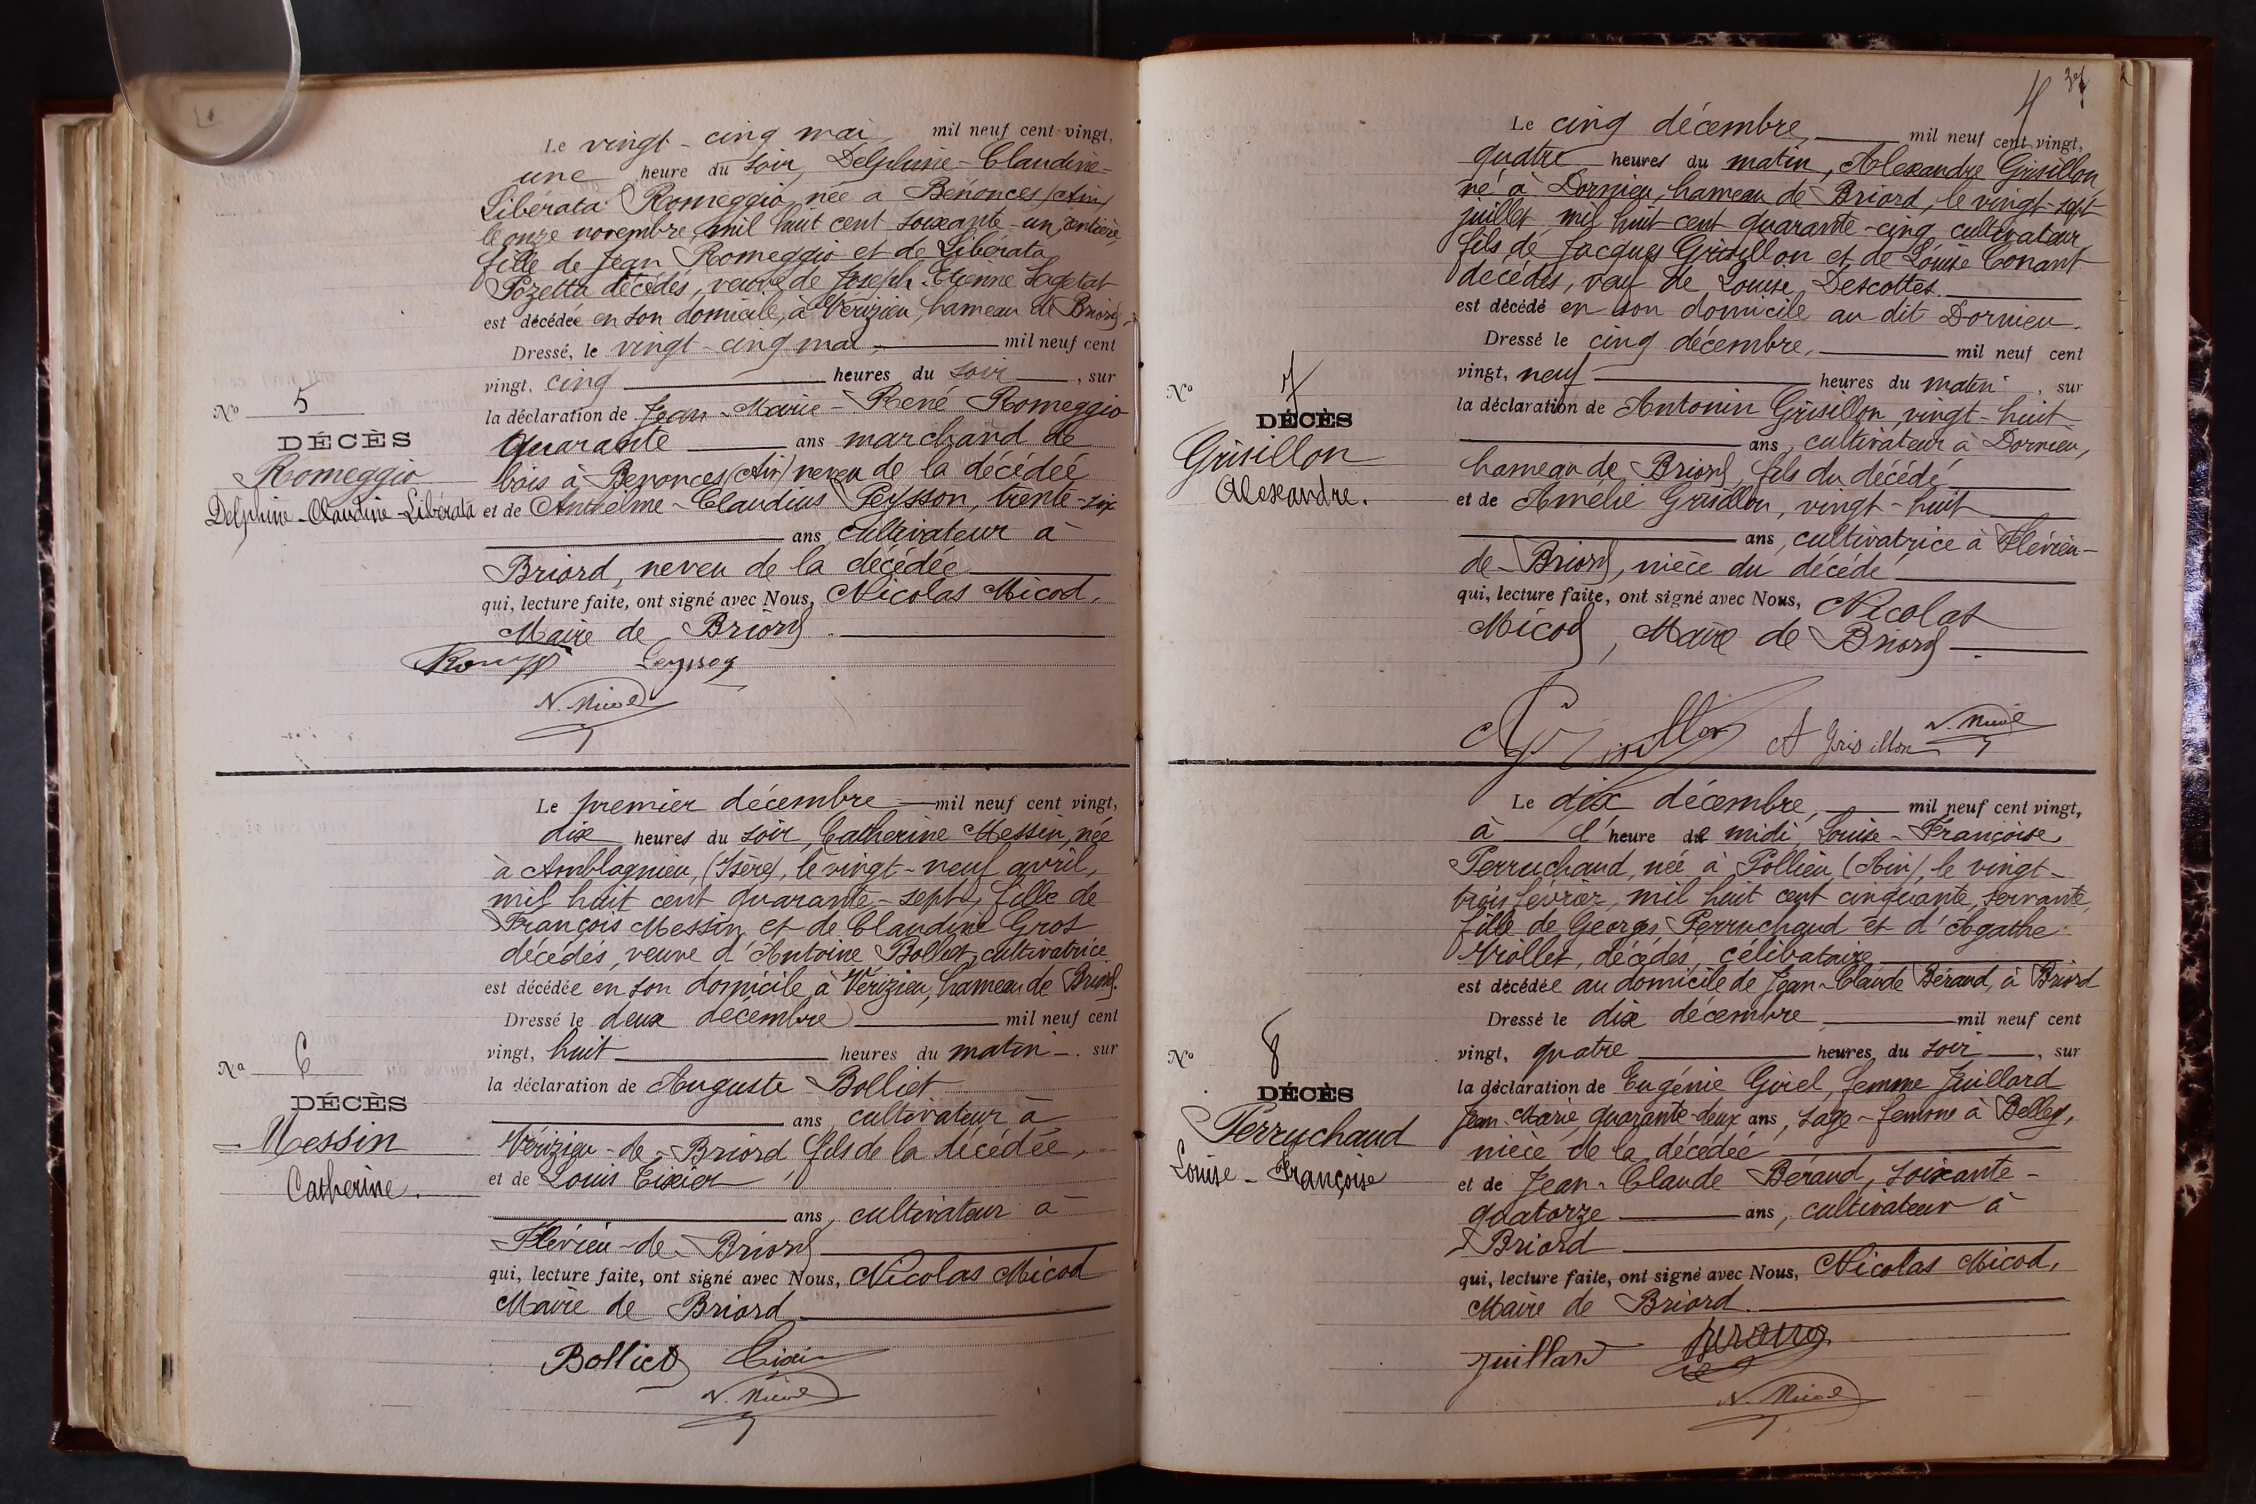 Le vingt-cinq mai mil neuf cent vingt,
une heure du soir, Delphine-Claudine-
Libérata Romeggio, née à Bénonces (Ain)
le onze novembre, mil huit cent soixante-un, rentière,
fille de Jean Romeggio et de Libérata
Pozetta décédés, veuve de Joseph-Etienne
est décédée en son domicile, à Vérizieu, hameau de Briord.
Dressé, le vingt-cinq mai, mil neuf cent
vingt, cinq heures du soir, sur
la déclaration de Jean-Marie-René Romeggio
quarante ans marchand de
bois à Benonces (Ain) neveu de la décédée
et de Anthelme-Claudius Peysson, trente-six
ans cultivateur à
Briord, neveu de la décédée
qui, lecture faite, ont signé avec Nous, Nicolas Micod,
Maire de Briord.
Peysson
N. Micod
No 5
DÉCÈS
Romeggio
Delphine-Claudine-Libérata
Le premier décembre mil neuf cent vingt,
dix heures du soir, Catherine Messin, née
à Amblagnieu, (Isère), le vingt-neuf avril,
mil huit cent quarante-sept, fille de
François Messin et de Claudine Gros
décédés, veuve d'Antoine Bolliet, cultivatrice
est décédée en son domicile à Vérizieu, hameau de Briord.
Dressé le deux décembre mil neuf cent
vingt, huit heures du matin, sur
la déclaration de Auguste Bolliet
ans, cultivateur à
Vérizieu-de-Briord fils de la décédée,
et de Louis Tixier
ans, cultivateur à
Flévieu-de-Briord
qui, lecture faite, ont signé avec Nous, Nicolas Micod
Maire de Briord
Bolliet Tixier
N. Micod
No 6
DÉCÈS
Messin
Catherine.
4
Le cinq décembre, mil neuf cent vingt,
quatre heures du matin, Alexandre Grisillon,
né à Dornieu, hameau de Briord, le vingt-sept
juillet, mil huit cent quarante-cinq cultivateur,
fils de Jacques Grisillon et de Louise Conant
décédés, veuf de Louise Descottes.
est décédé en son domicile au dit Dornieu.
Dressé le cinq décembre, mil neuf cent
vingt, neuf heures du matin, sur
la déclaration de Antonin Grisillon, vingt-huit
ans, cultivateur à Dornieu,
hameau de Briord, fils du décédé
et de Amélie Grisillon, vingt-huit
ans, cultivatrice à Flévieu-
de-Briord, nièce du décédé
qui, lecture faite, ont signé avec Nous, Nicolas
Micod, Maire de Briord.
A Grisillon A Grisillon N. Micod
No 7
DÉCÈS
Grisillon
Alexandre.
Le dix décembre, mil neuf cent vingt,
à l'heure de midi, Louise-Françoise
Perruchaud, née à Pollieu (Ain), le vingt-
trois février, mil huit cent cinquante, servante,
fille de Georges Perruchaud et d'Agathe
Viollet, décédés, célibataire
est décédée au domicile de Jean-Claude Béraud, à Briord
Dressé le dix décembre mil neuf cent
vingt, quatre heures du soir, sur
la déclaration de Eugénie Goiel, femme Juillard
Jean-Marie, quarante-deux ans, sage-femme à Belley,
nièce de la décédée
et de Jean-Claude Béraud, soixante-
quatorze ans, cultivateur à
Briord
qui, lecture faite, ont signé avec Nous, Nicolas Micod,
Maire de Briord.
Juillard
N. Micod
No 8
DÉCÈS
Perruchaud
Louise-Françoise